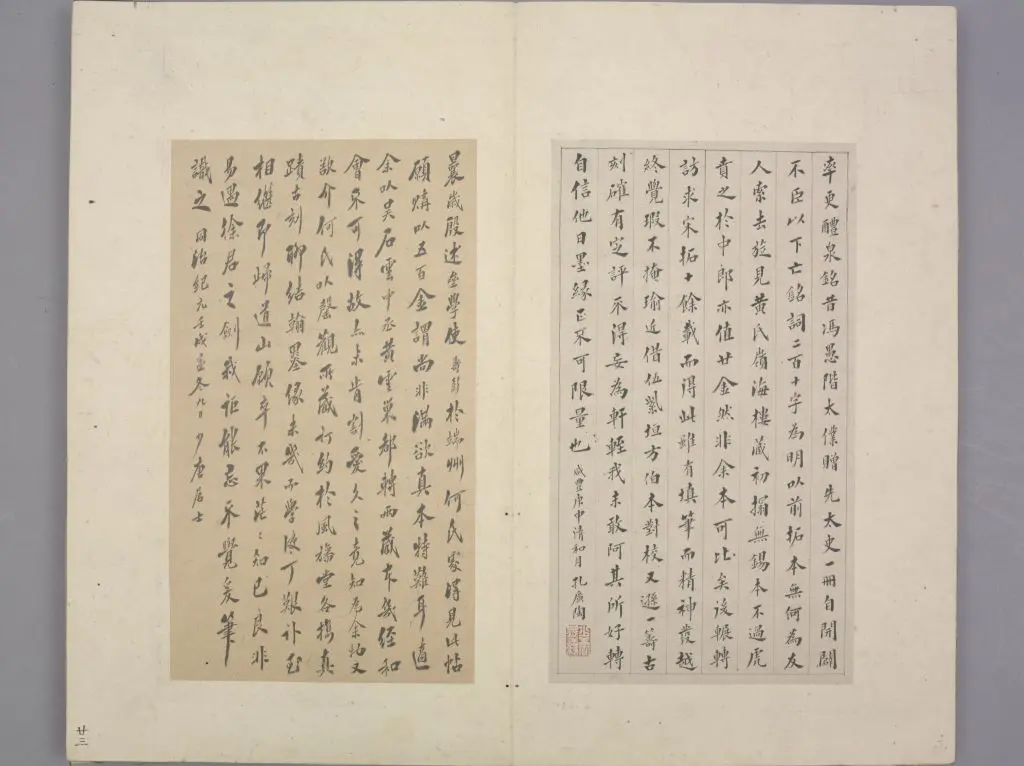 率更醴泉銘昔馮愚階太僕贈先太史一冊自開闢
不臣以下亡銘詞二百十字為明以前拓本無何為友
人索去旋見黃氏嶺海樓藏初搨無錫本不過虎
賁之於中郎亦值廿金然非余本可比矣後輾轉
訪求宋拓十餘載而得此雖有填筆而精神發越
終覺瑕不掩瑜近借伍紫垣方伯本對校又遜一籌古
刻確有定評不得妄為軒輊我未敢阿其所好轉
自信他日墨緣正不可限量也 咸豐庚申清和月孔廣陶
晨歲殷述齋學使壽彭於端州何氏家得見此帖
願購以五百金謂尚非滿欲真本特難耳適
余以吳石雲中丞黃雲巢都轉兩藏本幾經和
會不可得故亦未肯割愛久之竟知允余約又
欲介何氏以罄觀所藏訂約於風滿堂各攜真
蹟古刻聊結翰墨緣未幾而學使丁艱訃至
相繼即歸道山願卒不果茫茫知己良非
易遇徐君之劍我詎能忘不覺爰筆
識之 同治紀元壬戌孟冬九日 少唐居士
廿三